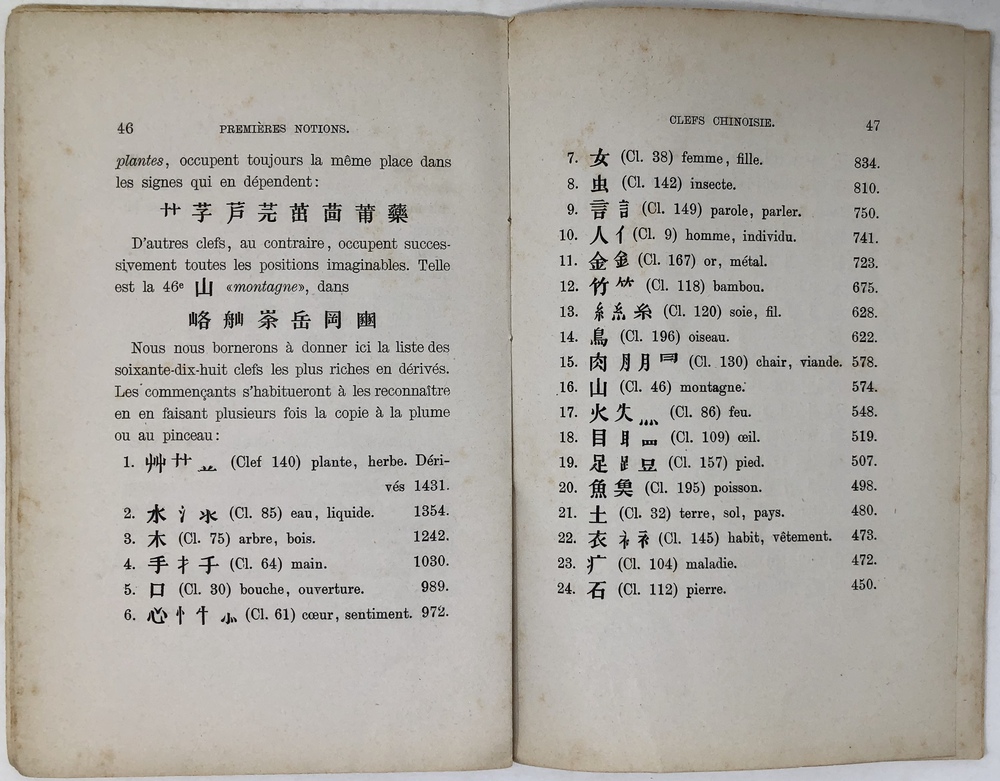 46 PREMIÈRES NOTIONS.
plantes, occupent toujours la même place dans
les signes qui en dépendent:
艹 芓 芦 芫 茁 茴 莆 藥
D'autres clefs, au contraire, occupent succes-
sivement toutes les positions imaginables. Telle
est la 46e 山 «montagne», dans
峈 舢 岽 岳 岡 豳
Nous nous bornerons à donner ici la liste des
soixante-dix-huit clefs les plus riches en dérivés.
Les commençants s'habitueront à les reconnaître
en en faisant plusieurs fois la copie à la plume
ou au pinceau:
1. 艸 艹 (Clef 140) plante, herbe. Déri-
vés 1431.
2. 水 氵 氺 (Cl. 85) eau, liquide. 1354.
3. 木 (Cl. 75) arbre, bois. 1242.
4. 手 扌 手 (Cl. 64) main. 1030.
5. 口 (Cl. 30) bouche, ouverture. 989.
6. 心 忄 㣺 (Cl. 61) cœur, sentiment. 972.
CLEFS CHINOISIE. 47
7. 女 (Cl. 38) femme, fille. 834.
8. 虫 (Cl. 142) insecte. 810.
9. 言 訁 (Cl. 149) parole, parler. 750.
10. 人 亻 (Cl. 9) homme, individu. 741.
11. 金 釒 (Cl. 167) or, métal. 723.
12. 竹 ⺮ (Cl. 118) bambou. 675.
13. 糹 糸 (Cl. 120) soie, fil. 628.
14. 鳥 (Cl. 196) oiseau. 622.
15. 肉 月 月 (Cl. 130) chair, viande. 578.
16. 山 (Cl. 46) montagne. 574.
17. 火 灬 (Cl. 86) feu. 548.
18. 目 罒 (Cl. 109) œil. 519.
19. 足 𧾷 (Cl. 157) pied. 507.
20. 魚 (Cl. 195) poisson. 498.
21. 土 (Cl. 32) terre, sol, pays. 480.
22. 衣 衤 (Cl. 145) habit, vêtement. 473.
23. 疒 (Cl. 104) maladie. 472.
24. 石 (Cl. 112) pierre. 450.